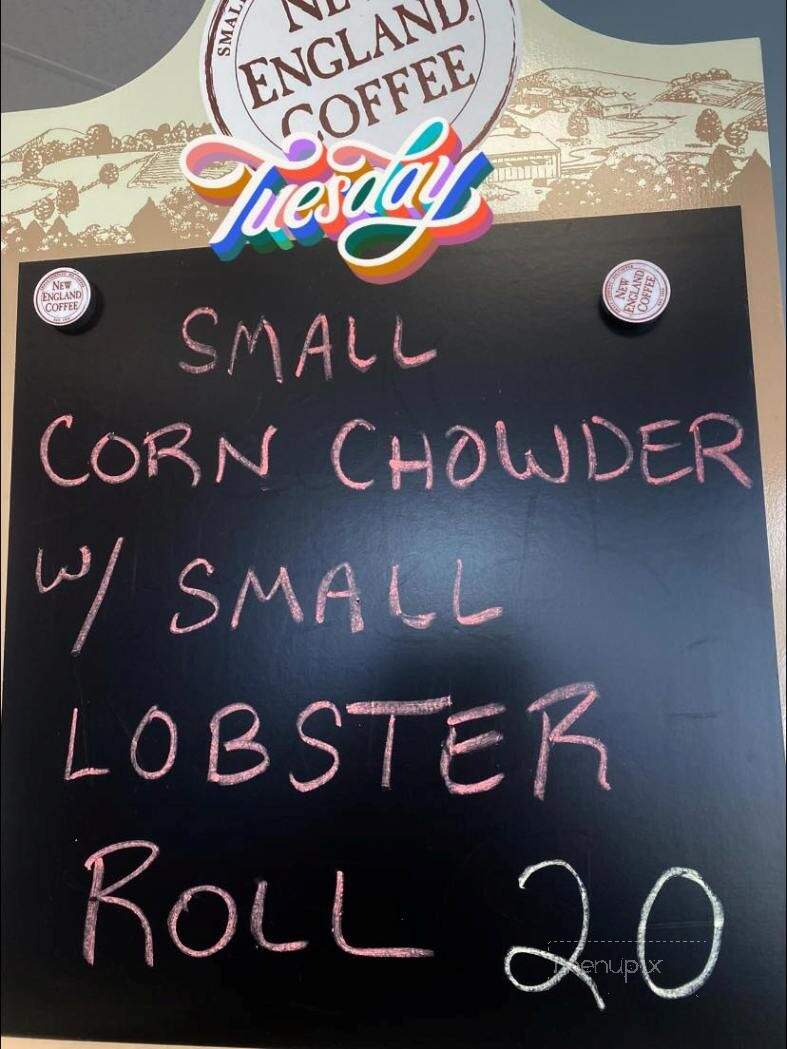 SMALL
NEW
ENGLAND
COFFEE
Tuesday
NEW
ENGLAND
COFFEE
NEW
ENGLAND
COFFEE
SMALL
CORN CHOWDER
W/ SMALL
LOBSTER
ROLL 20
menupix